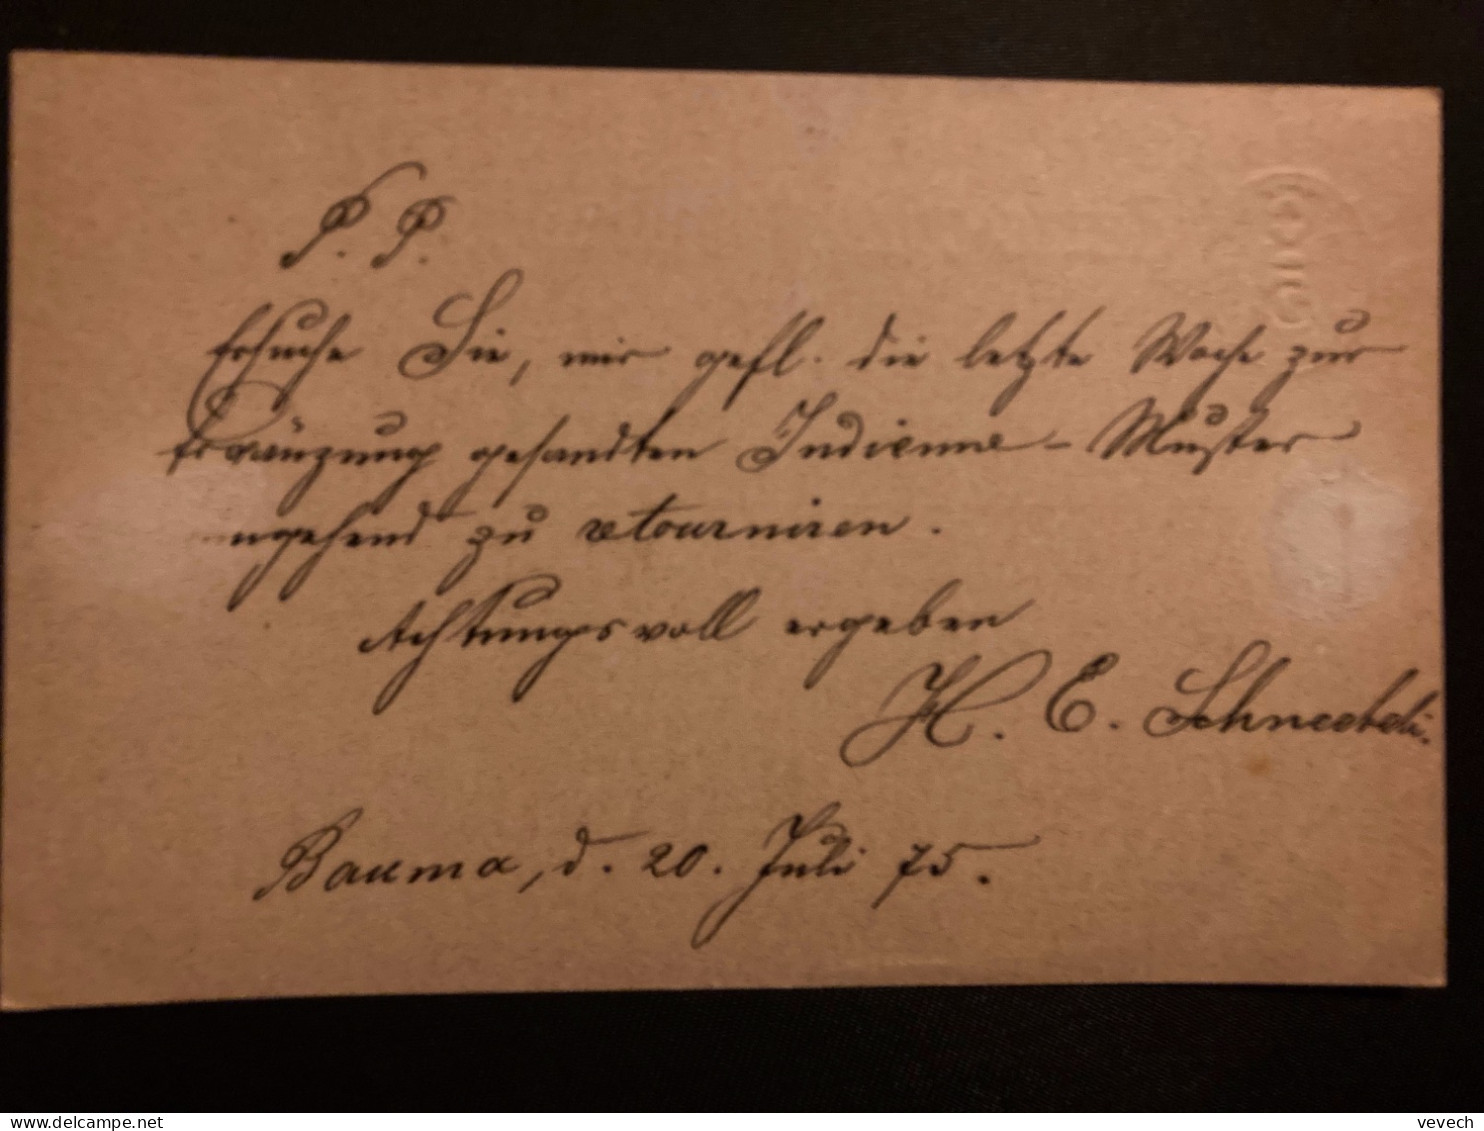 P. P.
Ersuche Sie, mir gefl. die letzte Woche zur
Ergänzung gesandten Indienne-Muster
umgehend zu retourniren.
Achtungsvoll ergeben
H. E. Schneebeli.
Bauma, d. 20. Juli 75.
www.delcampe.net
vevech